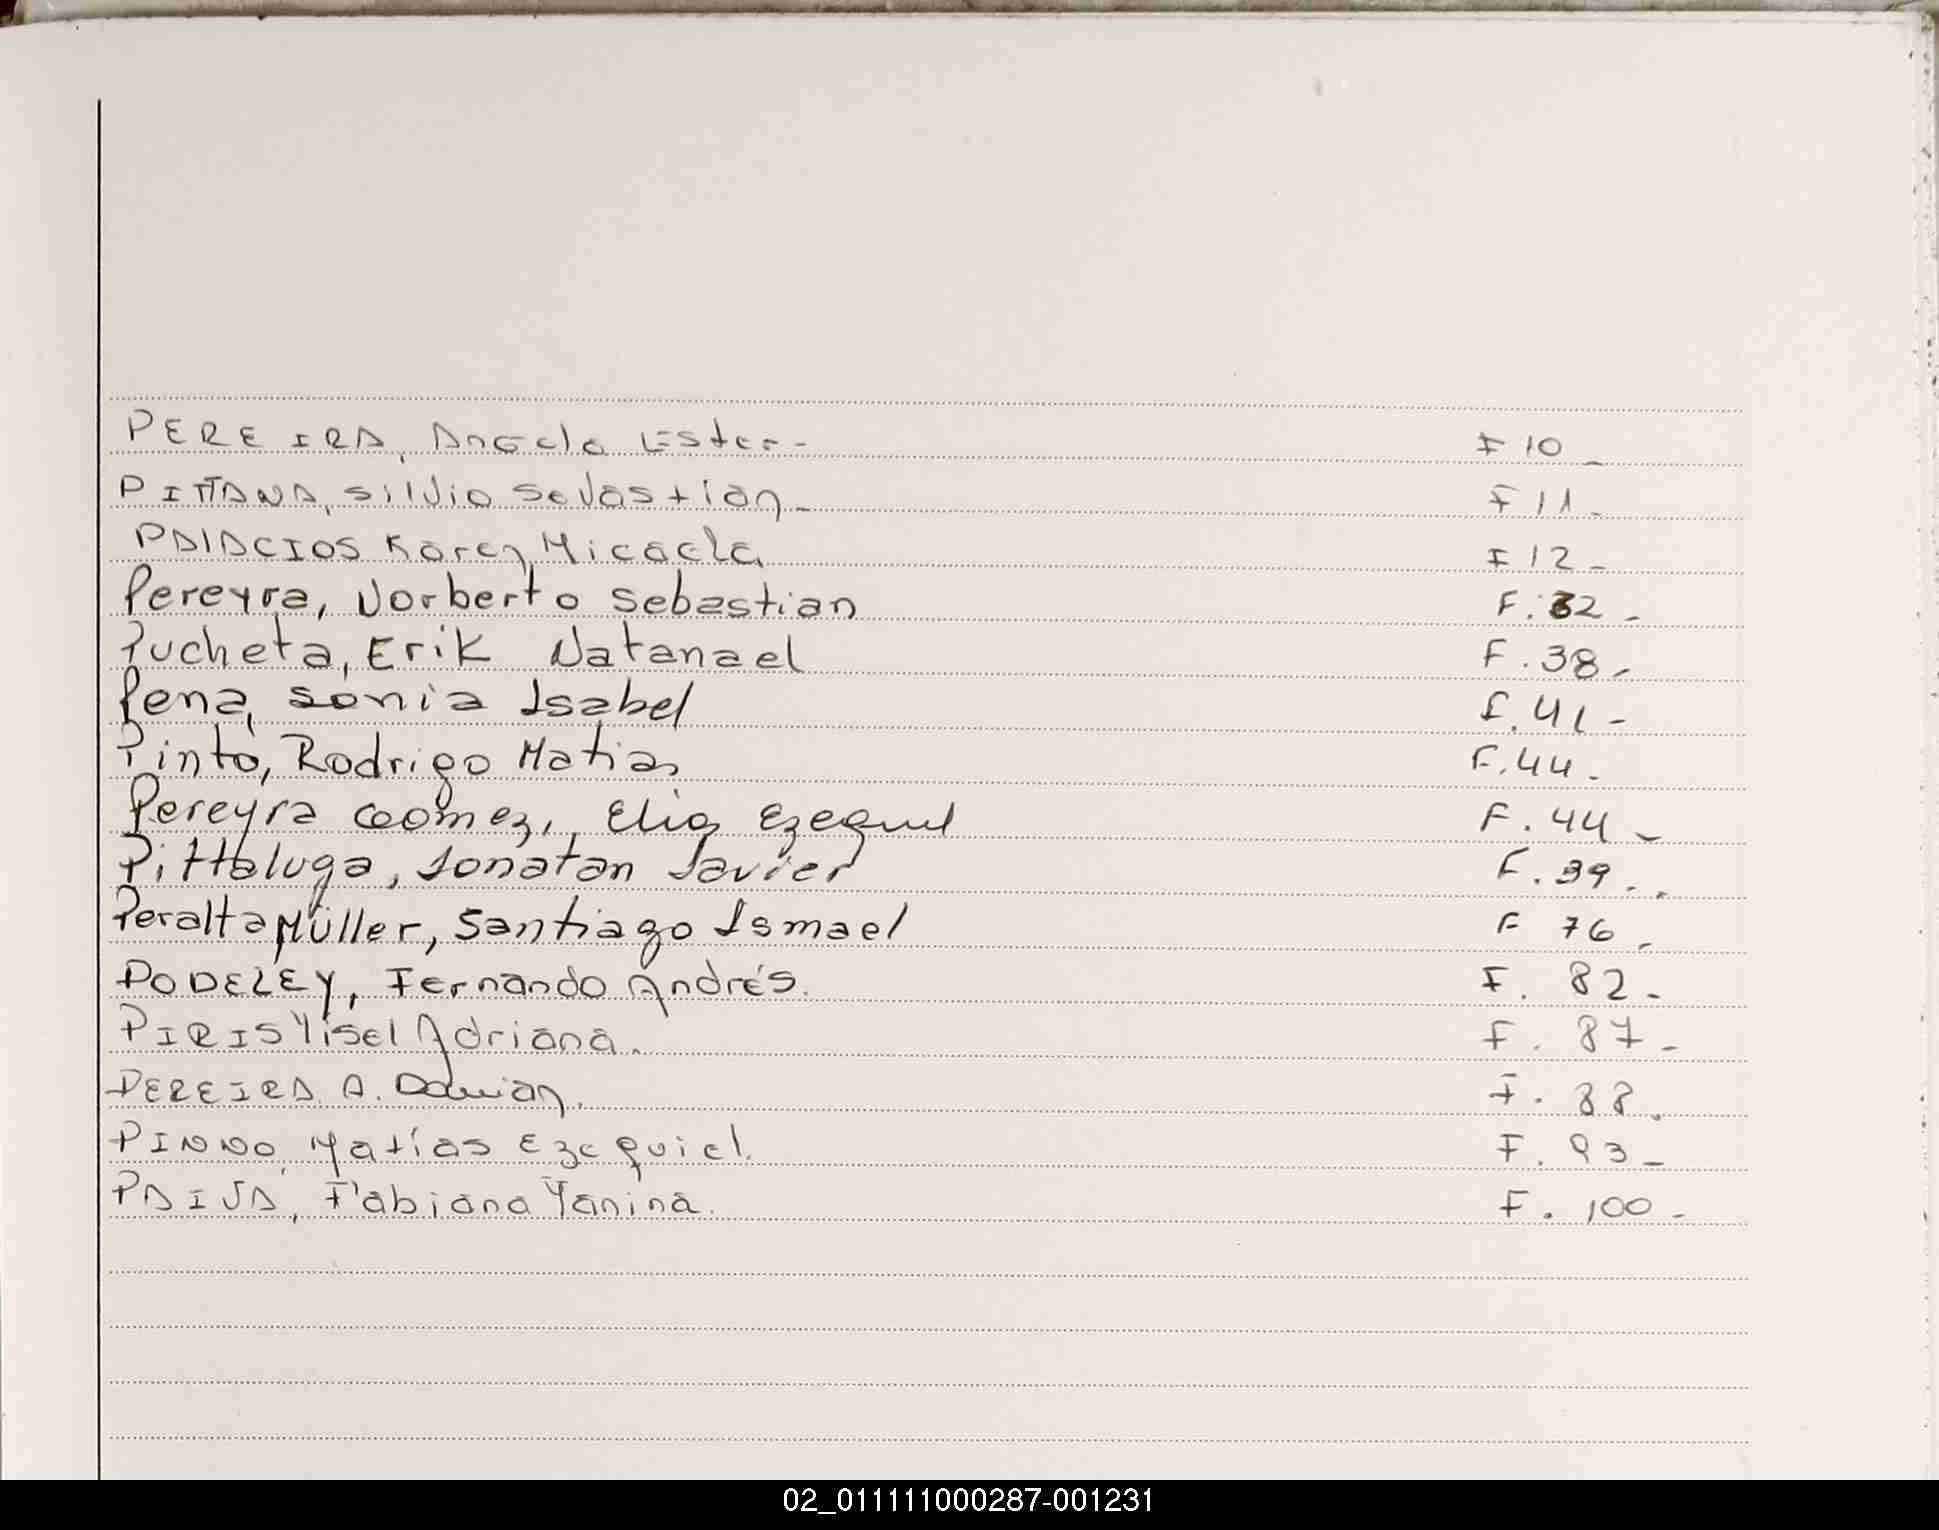 PEREIRA, Angela Ester- F 10_
PIÑANA, Silvio Sevastian_ F 11_
PALACIOS Karen Micaela F 12_
Pereyra, Norberto Sebastian F. 32_
Pucheta, Erik Natanael F. 38_
Pena, Sonia Isabel F. 41-
Pinto, Rodrigo Matias F. 44.
Pereyra Goomez, Elias Ezequiel F. 44_
Pittaluga, Jonatan Javier F. 39..
Peralta Müller, Santiago Ismael F 76_
PODELEY, Fernando Andrés. F. 82_
PIRIS Yisel Adriana. F. 87_
PEREIRA A. Damian. F. 88.
PINNO, Matías Ezequiel. F. 93_
PAIVA, Fabiana Yanina. F. 100_
02_011111000287-001231